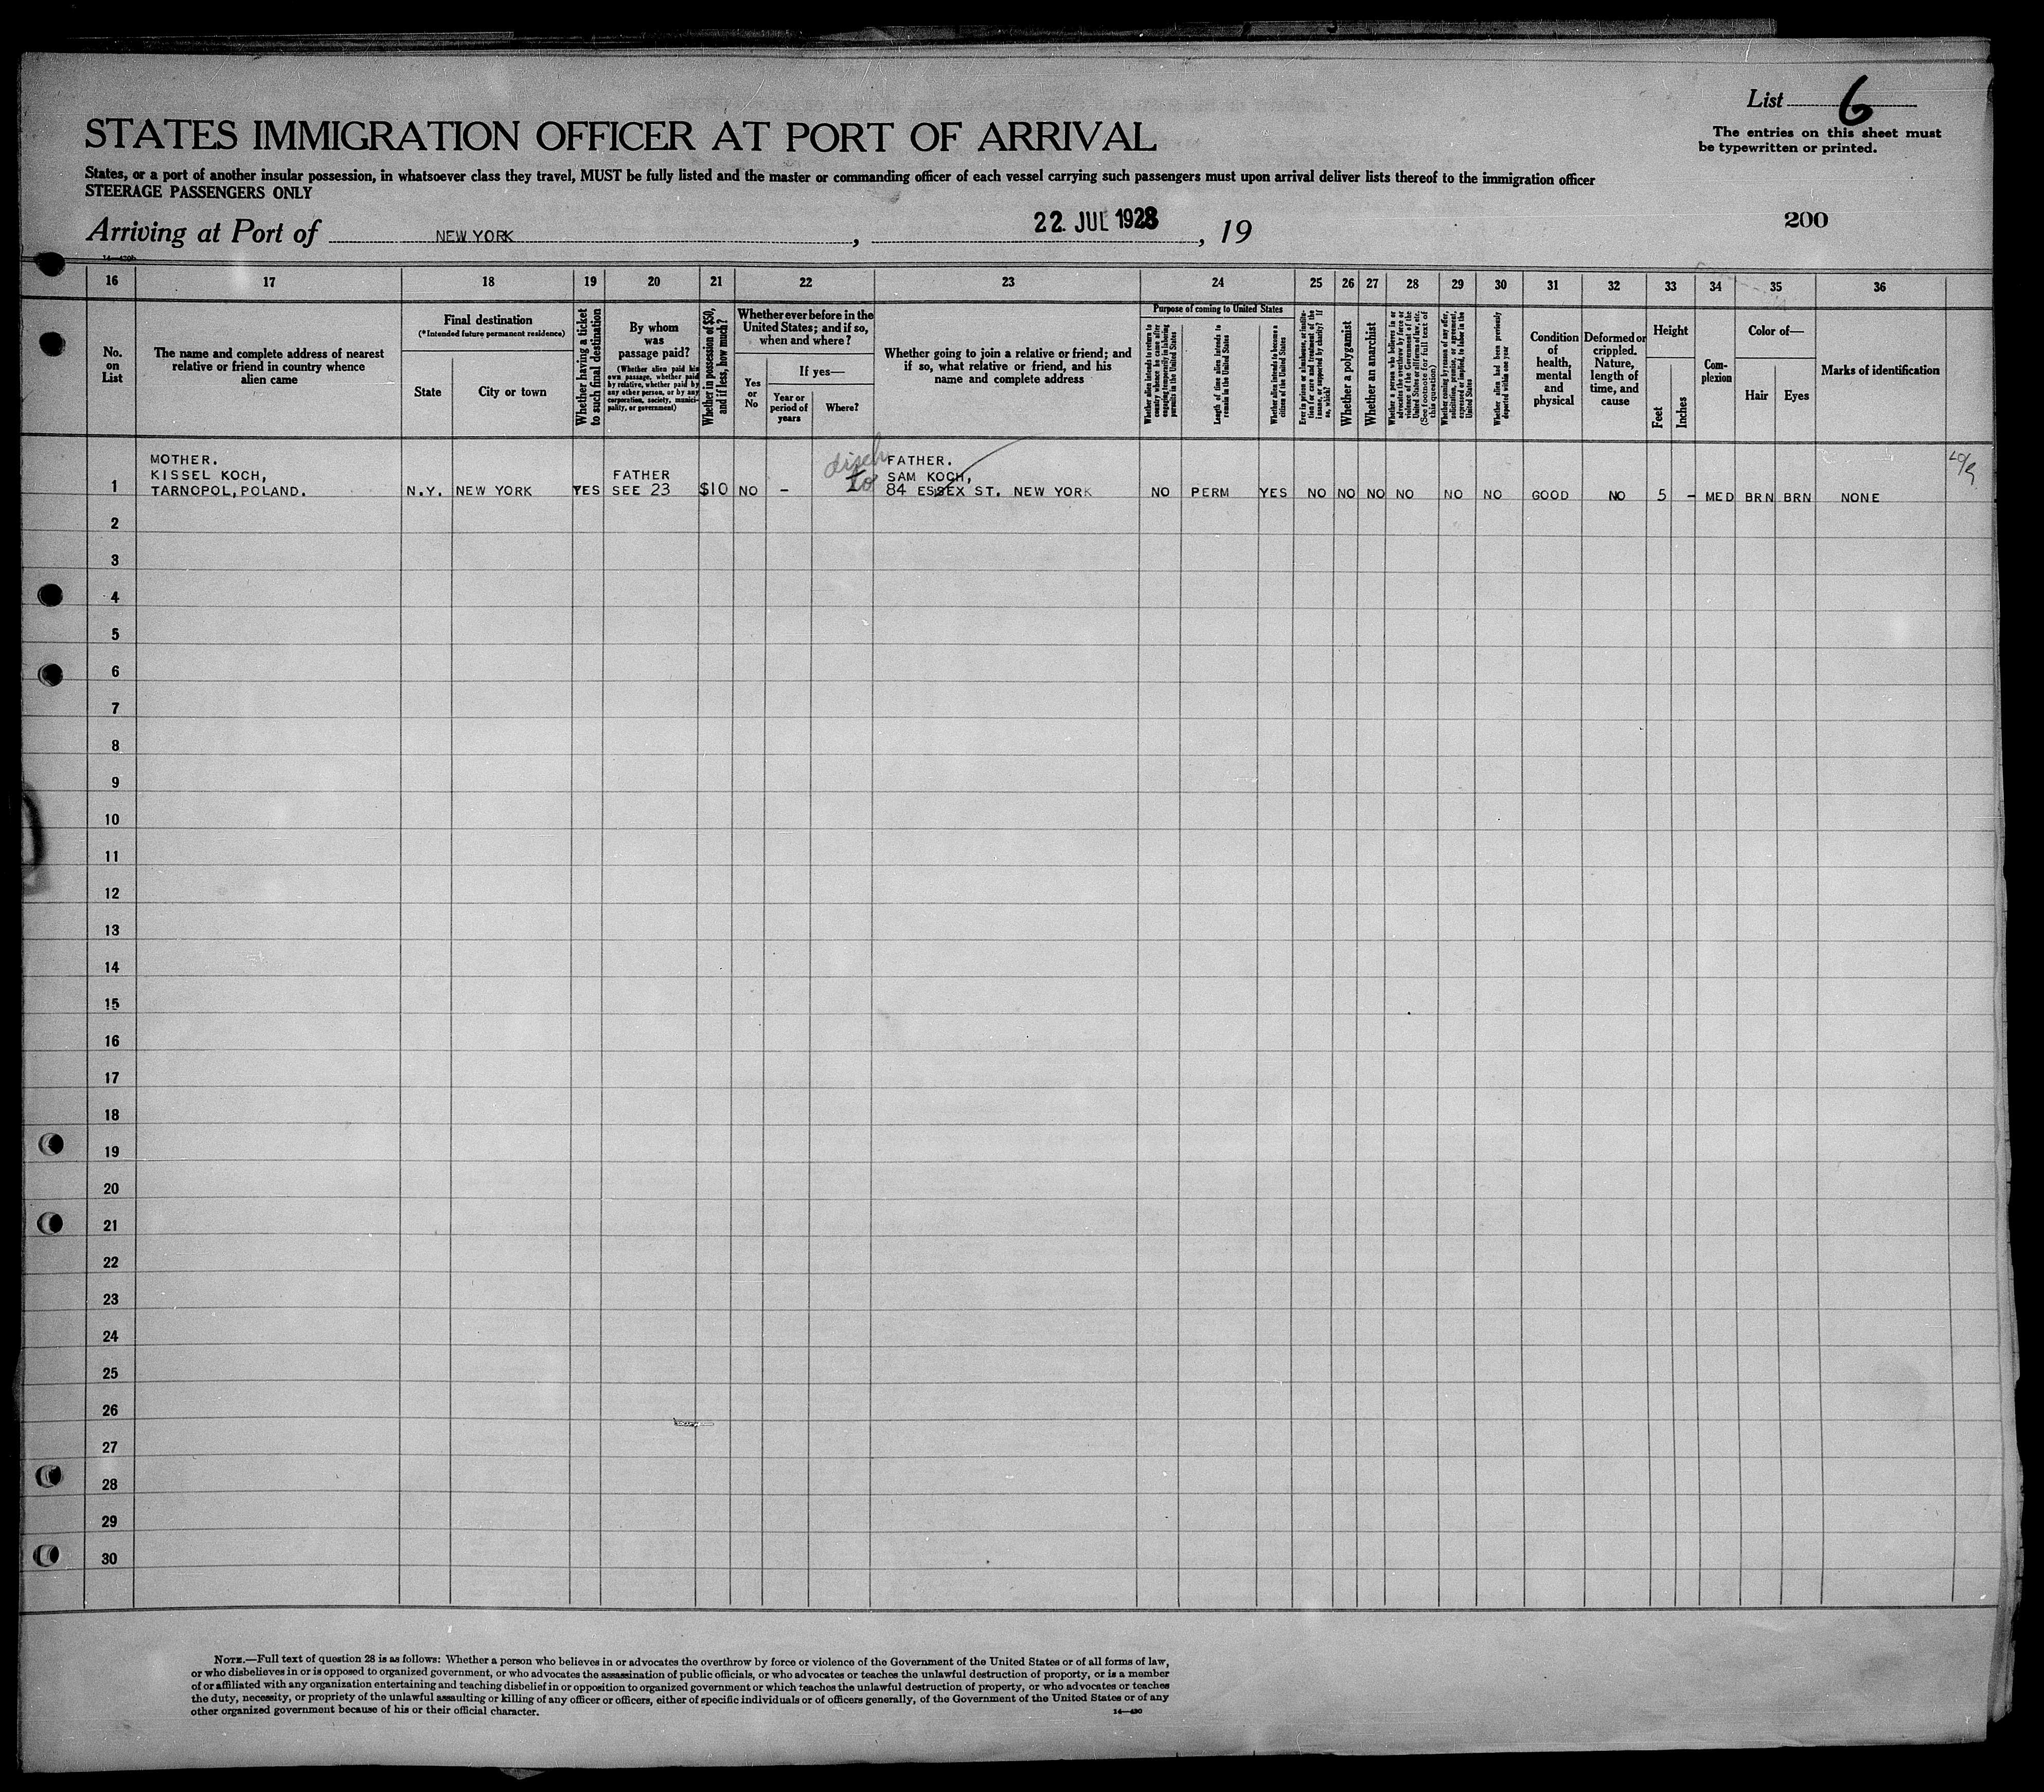 List 6
The entries on this sheet must
be typewritten or printed.
STATES IMMIGRATION OFFICER AT PORT OF ARRIVAL
States, or a port of another insular possession, in whatsoever class they travel, MUST be fully listed and the master or commanding officer of each vessel carrying such passengers must upon arrival deliver lists thereof to the immigration officer
STEERAGE PASSENGERS ONLY
200
Arriving at Port of NEW YORK, 22. JUL 1928, 19
16 17 18 19 20 21 22 23 24 25 26 27 28 29 30 31 32 33 34 35 36
No.
on
List
The name and complete address of nearest
relative or friend in country whence
alien came
Final destination
(*Intended future permanent residence)
State
City or town
Whether having a ticket
to such final destination
By whom
was
passage paid?
(Whether alien paid his
own passage, whether paid
by relative, whether paid by
any other person, or by any
corporation, society, munici-
pality, or government)
Whether in possession of $50,
and if less, how much?
Whether ever before in the
United States; and if so,
when and where?
Yes
or
No
If yes—
Year or
period of
years
Where?
Whether going to join a relative or friend; and
if so, what relative or friend, and his
name and complete address
Purpose of coming to United States
Whether alien intends to return to
country whence he came after
engaging temporarily in laboring
pursuits in the United States
Length of time alien intends to
remain in the United States
Whether alien intends to become a
citizen of the United States
Ever in prison or almshouse, or institu-
tion for care and treatment of the
insane, or supported by charity? If
so, which?
Whether a polygamist
Whether an anarchist
Whether a person who believes in or
advocates the overthrow by force or
violence of the Government of the
United States or all forms of law, etc.
(See footnote for full text of
this question)
Whether coming by reason of any offer,
solicitation, promise, or agreement,
expressed or implied, to labor in the
United States
Whether alien had been previously
deported within one year
Condition
of
health,
mental
and
physical
Deformed or
crippled.
Nature,
length of
time, and
cause
Height
Feet
Inches
Com-
plexion
Color of—
Hair
Eyes
Marks of identification
MOTHER.
KISSEL KOCH,
TARNOPOL, POLAND.
FATHER
disch
to
FATHER.
SAM KOCH,
1 N.Y. NEW YORK YES SEE 23 $10 NO - 84 ESSEX ST. NEW YORK NO PERM YES NO NO NO NO NO NO GOOD NO 5 - MED BRN BRN NONE
2
3
4
5
6
7
8
9
10
11
12
13
14
15
16
17
18
19
20
21
22
23
24
25
26
27
28
29
30
NOTE.—Full text of question 28 is as follows: Whether a person who believes in or advocates the overthrow by force or violence of the Government of the United States or of all forms of law,
or who disbelieves in or is opposed to organized government, or who advocates the assassination of public officials, or who advocates or teaches the unlawful destruction of property, or is a member
of or affiliated with any organization entertaining and teaching disbelief in or opposition to organized government or which teaches the unlawful destruction of property, or who advocates or teaches
the duty, necessity, or propriety of the unlawful assaulting or killing of any officer or officers, either of specific individuals or of officers generally, of the Government of the United States or of any
other organized government because of his or their official character.
14—430